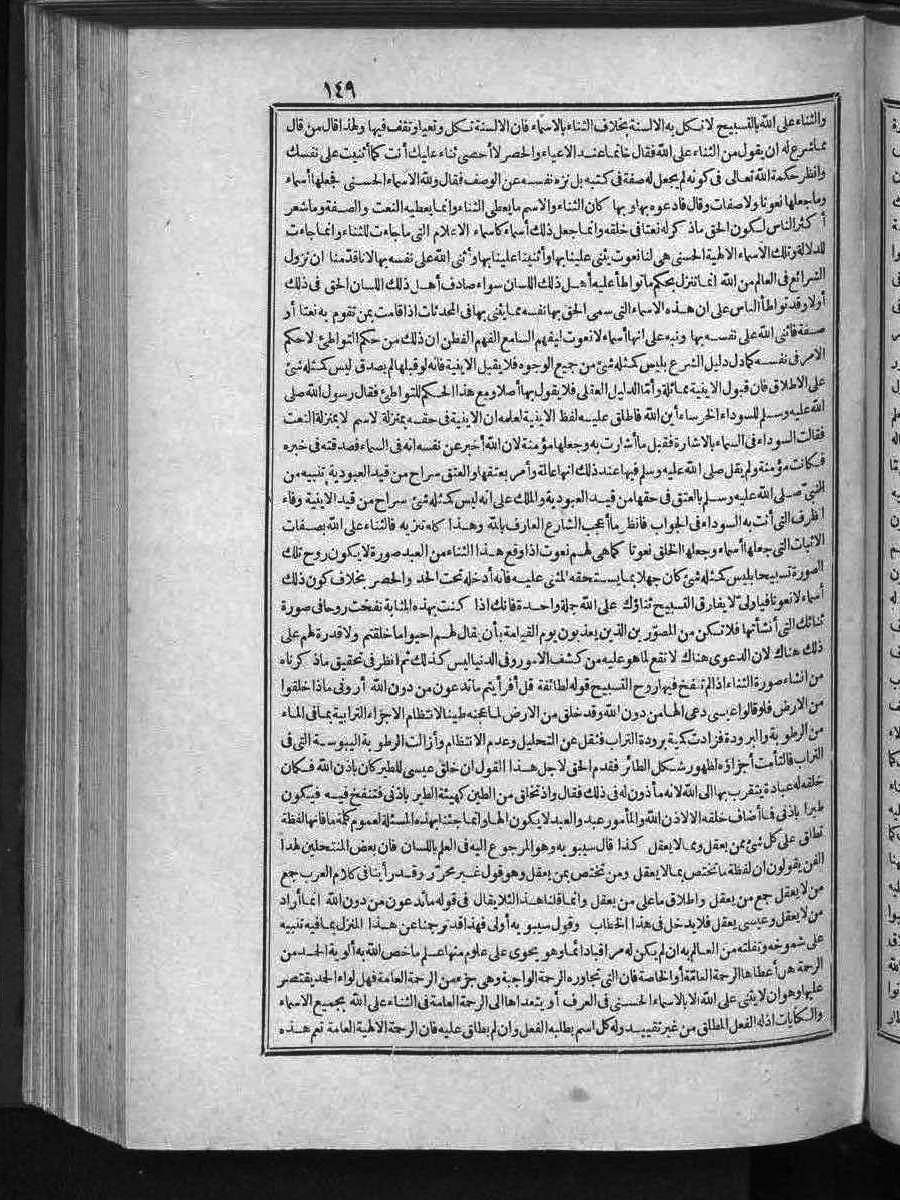 ١٤٩
والثناء على الله بالتسبيح لا تكل به الالسنة بخلاف الثناء بالاسماء فان الالسنة تكل وتعيا وتقف فيها ولهذا قال من قال
مما شرع له ان يقول من الثناء على الله فقال خاتما عند الاعياء والحصر لا أحصى ثناء عليك أنت كما أثنيت على نفسك
وانظر حكمة الله تعالى فى كونه لم يجعل له صفة فى كتبه بل نزه نفسه عن الوصف فقال ولله الاسماء الحسنى فجعلها أسماء
وما جعلها نعوتا ولا صفات وقال فادعوه بها وبها كان الثناء والاسم ما يعطى الثناء وانما يعطيه النعت والصفة وما شعر
أكثر الناس لكون الحق ما ذكر له نعتا فى خلقه وانما جعل ذلك أسماء كاسماء الاعلام التى ما جاءت للثناء وانما جاءت
للدلالة وتلك الاسماء الالهية الحسنى هى لنا نعوت يثنى علينا بها وأثنينا علينا بها وأثنى الله على نفسه بها لانا قدمنا ان نزول
الشرائع فى العالم من الله انما تنزل بحكم ما تواطأ عليه أهل ذلك اللسان سواء صادف أهل ذلك اللسان الحق فى ذلك
أولا وقد تواطأ الناس على ان هذه الاسماء التى سمى الحق بها نفسه مما يثنى بها فى المحدثات اذا قامت بمن تقوم به نعتا أو
صفة فاثنى الله على نفسه بها ونبه على انها أسماء لا نعوت ليفهم السامع الفهم الفطن ان ذلك من حكم التواطئ لا حكم
الامر فى نفسه كما دل دليل الشرع بليس كمثله شئ من جميع الوجوه فلا يقبل الاينية فانه لو قبلها لم يصدق ليس كمثله شئ
على الاطلاق فان قبول الاينية مماثلة وأما الدليل العقلى فلا يقول بها أصلا ومع هذا الحكم للتواطئ فقال رسول الله صلى
الله عليه وسلم للسوداء الخرساء أين الله فاطلق عليه لفظ الاينية لعلمه ان الاينية فى حقه بمنزلة لاسم لا بمنزلة النعت
فقالت السوداء فى السماء بالاشارة فقبل ما أشارت به وجعلها مؤمنة لان الله أخبر عن نفسه انه فى السماء فصدقته فى خبره
فكانت مؤمنة ولم يقل صلى الله عليه وسلم فيها عند ذلك انها عالمة وأمر بعتقها والعتق سراح من قيد العبودية تنبيه من
النبى صلى الله عليه وسلم بالعتق فى حقها من قيد العبودية والملك على انه ليس كمثله شئ سراح من قيد الاينية وفاء
الظرف التى أتت به السوداء فى الجواب فانظر ما أعجب الشارع العارف بالله وهذا كله تنزيه فالثناء على الله بصفات
الاثبات التى جعلها أسماء وجعلها الخلق نعوتا كما هى لهم نعوت اذا وقع هذا الثناء من العبد صورة لا يكون روح تلك
الصورة تسبيحا بليس كمثله شئ كان جهلا بما يستحقه المثنى عليه فانه أدخله تحت الحد والحصر بخلاف كون ذلك
أسماء لا نعوتا فيا ولى لا يفارق التسبيح ثناؤك على الله جملة واحدة فانك اذا كنت بهذه المثابة نفخت روحا فى صورة
ثنائك التى أنشأتها فلا تكن من المصورين الذين يعذبون يوم القيامة بأن يقال لهم احيوا ما خلقتم ولا قدرة لهم على
ذلك هناك لان الدعوى هناك لا تقع لما هو عليه من كشف الامور وفى الدنيا ليس كذلك ثم انظر فى تحقيق ما ذكرناه
من انشاء صورة الثناء اذا لم تنفخ فيها روح التسبيح قوله لطائفة قل أفرأيتم ما تدعون من دون الله أرونى ماذا خلقوا
من الارض فلو قالوا عيسى دعى الها من دون الله وقد خلق من الارض لما عجنه طينا لانتظام الاجزاء الترابية بما فى الماء
من الرطوبة والبرودة فزادت كمية برودة التراب فثقل عن التحليل وعدم الانتظام وأزالت الرطوبة اليبوسة التى فى
التراب فالتأمت أجزاؤه لظهور شكل الطائر فقدم الحق لاجل هذا القول ان خلق عيسى للطير كان باذن الله فكان
خلقه له عبادة يتقرب بها الى الله لانه مأذون له فى ذلك فقال واذ تخلق من الطين كهيئة الطير باذنى فتنفخ فيه فيكون
طيرا باذنى فما أضاف خلقه الا لاذن الله والمأمور عبد والعبد لا يكون الها وانما جئنا بهذه المسئلة لعموم كلمة ما فانها لفظة
تطلق على كل شئ ممن يعقل ومما لا يعقل كذا قال سيبويه وهو المرجوع اليه فى العلم باللسان فان بعض المنتحلين لهذا
الفن يقولون ان لفظة ما تختص بما لا يعقل ومن تختص بمن يعقل وهو قول غير محرر وقد رأينا فى كلام العرب جمع
من لا يعقل جمع من يعقل واطلاق ما على من يعقل وانما قلنا هذا لئلا يقال فى قوله ما تدعون من دون الله انما أراد
من لا يعقل وعيسى يعقل فلا يدخل فى هذا الخطاب وقول سيبويه أولى فهذا قد ترجمنا عن هذا المنزل بما فيه تنبيه
على شموخه وتفلته من العالم به ان لم يكن له مراقبا دائما وهو يحوى على علوم منها علم ما خص الله به ألوية الحمد من
الرحمة هل أعطاها الرحمة العامة أو الخاصة فان التى تجاوره الرحمة الواجبة وهى جزء من الرحمة العامة فهل لواء الحمد يقتصر
عليها وهو ان لا يثنى على الله الا بالاسماء الحسنى فى العرف أو يتعداها الى الرحمة العامة فى الثناء على الله بجميع الاسماء
والكنايات اذ له الفعل المطلق من غير تقييد وله كل اسم يطلبه الفعل وان لم يطلق عليه فان الرحمة الالهية العامة تعم هذه